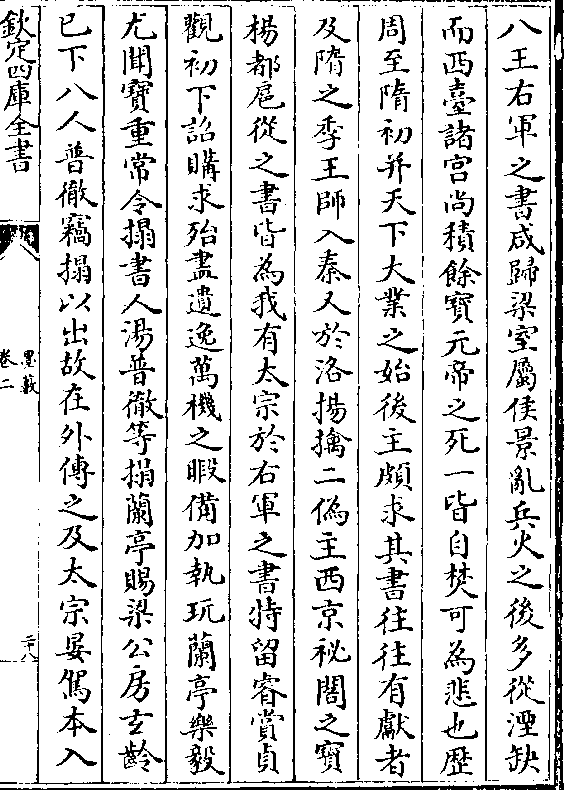 八王右軍之書咸歸梁室屬侯景亂兵火之後多從湮缺
而西臺諸宮尚積餘寶元帝之死一皆自焚可為悲也歴
周至隋初并天下大業之始後主頗求其書往往有獻者
及隋之季王師入秦又於洛揚擒二偽主西京祕閣之寶
楊都扈從之書皆為我有太宗於右軍之書特留睿賞貞
觀初下詔購求殆盡遺逸萬機之暇備加執玩蘭亭樂毅
尤聞寶重常令搨書人湯普徹等搨蘭亭賜梁公房玄齡
已下八人普徹竊搨以出故在外傳之及太宗晏駕本入
欽定四庫全書
墨藪
卷二
二十八